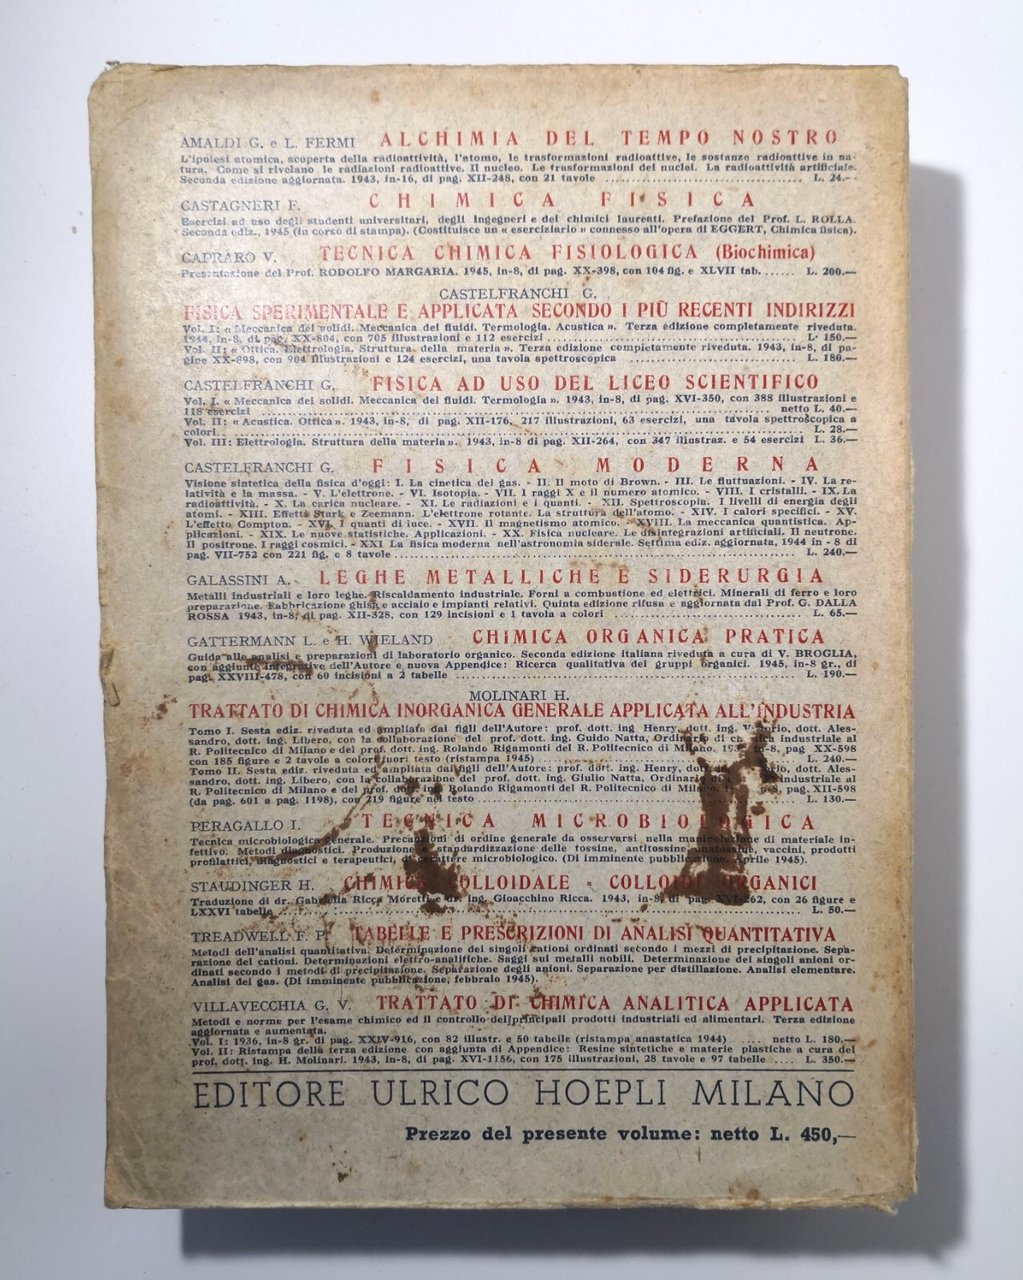 AMALDI G. e L. FERMI ALCHIMIA DEL TEMPO NOSTRO
L'ipotesi atomica, scoperta della radioattività, l'atomo, le trasformazioni radioattive, le sostanze radioattive in na-
tura. Come si rivelano le radiazioni radioattive. Il nucleo. Le trasformazioni dei nuclei. La radioattività artificiale.
Seconda edizione aggiornata. 1943, in-16, di pag. XII-248, con 21 tavole ........ L. 24.—
CASTAGNERI F. CHIMICA FISICA
Esercizi ad uso degli studenti universitari, degli ingegneri e dei chimici laureati. Prefazione del Prof. L. ROLLA.
Seconda ediz., 1945 (in corso di stampa). (Costituisce un « eserciziario » connesso all'opera di EGGERT, Chimica fisica).
CAPRARO V. TECNICA CHIMICA FISIOLOGICA (Biochimica)
Presentazione del Prof. RODOLFO MARGARIA. 1945, in-8, di pag. XX-398, con 104 fig. e XLVII tab. ...... L. 200.—
CASTELFRANCHI G.
FISICA SPERIMENTALE E APPLICATA SECONDO I PIÙ RECENTI INDIRIZZI
Vol. I: « Meccanica dei solidi. Meccanica dei fluidi. Termologia. Acustica ». Terza edizione completamente riveduta.
1944, in-8, di pag. XX-804, con 705 illustrazioni e 112 esercizi ........ L. 150.—
Vol. II: « Ottica. Elettrologia. Struttura della materia ». Terza edizione completamente riveduta. 1943, in-8, di pa-
gine XX-898, con 904 illustrazioni e 124 esercizi, una tavola spettroscopica ........ L. 180.—
CASTELFRANCHI G. FISICA AD USO DEL LICEO SCIENTIFICO
Vol. I. « Meccanica dei solidi. Meccanica dei fluidi. Termologia ». 1943, in-8, di pag. XVI-350, con 388 illustrazioni e
118 esercizi ........ netto L. 40.—
Vol. II: « Acustica. Ottica ». 1943, in-8, di pag. XII-176, 217 illustrazioni, 63 esercizi, una tavola spettroscopica a
colori ........ L. 28.—
Vol. III: Elettrologia. Struttura della materia ». 1943, in-8 di pag. XII-264, con 347 illustraz. e 54 esercizi L. 36.—
CASTELFRANCHI G. FISICA MODERNA
Visione sintetica della fisica d'oggi: I. La cinetica dei gas. - II. Il moto di Brown. - III. Le fluttuazioni. - IV. La re-
latività e la massa. - V. L'elettrone. - VI. Isotopia. - VII. I raggi X e il numero atomico. - VIII. I cristalli. - IX. La
radioattività. - X. La carica nucleare. - XI. Le radiazioni e i quanti. - XII. Spettroscopia. I livelli di energia degli
atomi. - XIII. Effetti Stark e Zeemann. L'elettrone rotante. La struttura dell'atomo. - XIV. I calori specifici. - XV.
L'effetto Compton. - XVI. I quanti di luce. - XVII. Il magnetismo atomico. - XVIII. La meccanica quantistica. Ap-
plicazioni. - XIX. Le nuove statistiche. Applicazioni. - XX. Fisica nucleare. Le disintegrazioni artificiali. Il neutrone.
Il positrone. I raggi cosmici. - XXI La fisica moderna nell'astronomia siderale. Settima ediz. aggiornata, 1944 in - 8 di
pag. VII-752 con 221 fig. e 8 tavole ........ L. 240.—
GALASSINI A. LEGHE METALLICHE E SIDERURGIA
Metalli industriali e loro leghe. Riscaldamento industriale. Forni a combustione ed elettrici. Minerali di ferro e loro
preparazione. Fabbricazione ghisa e acciaio e impianti relativi. Quinta edizione rifusa e aggiornata dal Prof. G. DALLA
ROSSA 1943, in-8, di pag. XII-328, con 129 incisioni e 1 tavola a colori ........ L. 65.—
GATTERMANN L. e H. WIELAND CHIMICA ORGANICA PRATICA
Guida alle analisi e preparazioni di laboratorio organico. Seconda edizione italiana riveduta a cura di V. BROGLIA,
con aggiunte integrative dell'Autore e nuova Appendice: Ricerca qualitativa dei gruppi organici. 1945, in-8 gr., di
pag. XXVIII-478, con 60 incisioni a 2 tabelle ........ L. 190.—
MOLINARI H.
TRATTATO DI CHIMICA INORGANICA GENERALE APPLICATA ALL'INDUSTRIA
Tomo I. Sesta ediz. riveduta ed ampliata dai figli dell'Autore: prof. dott. ing Henry, dott. ing. Vittorio, dott. Ales-
sandro, dott. ing. Libero, con la collaborazione del prof. dott. ing. Guido Natta, Ordinario di chimica industriale al
R. Politecnico di Milano e del prof. dott. ing. Rolando Rigamonti del R. Politecnico di Milano. in-8, pag XX-598
con 185 figure e 2 tavole a colori fuori testo (ristampa 1945) ........ L. 240.—
Tomo II. Sesta ediz. riveduta ed ampliata dai figli dell'Autore: prof. dott. ing. Henry, dott. ing. Vittorio, dott. Ales-
sandro, dott. ing. Libero, con la collaborazione del prof. dott. ing. Giulio Natta, Ordinario di chimica industriale al
R. Politecnico di Milano e del prof. dott. ing. Rolando Rigamonti del R. Politecnico di Milano. in-8, pag. XII-598
(da pag. 601 a pag. 1198), con 219 figure nel testo ........ L. 130.—
PERAGALLO I. TECNICA MICROBIOLOGICA
Tecnica microbiologica generale. Precauzioni di ordine generale da osservarsi nella manipolazione di materiale in-
fettivo. Metodi diagnostici. Produzione e standardizzazione delle tossine, antitossine, anatossine, vaccini, prodotti
profilattici, diagnostici e terapeutici, di carattere microbiologico. (Di imminente pubblicazione, aprile 1945).
STAUDINGER H. CHIMICA COLLOIDALE - COLLOIDI ORGANICI
Traduzione di dr. Gabriella Ricca Moretti e dr. ing. Gioacchino Ricca. 1943, in-8, di pag. XVI-262, con 26 figure e
LXXVI tabelle ........ L. 50.—
TREADWELL F. P. TABELLE E PRESCRIZIONI DI ANALISI QUANTITATIVA
Metodi dell'analisi quantitativa. Determinazione dei singoli cationi ordinati secondo i mezzi di precipitazione. Sepa-
razione dei cationi. Determinazioni elettro-analitiche. Saggi sui metalli nobili. Determinazione dei singoli anioni or-
dinati secondo i metodi di precipitazione. Separazione degli anioni. Separazione per distillazione. Analisi elementare.
Analisi dei gas. (Di imminente pubblicazione, febbraio 1945).
VILLAVECCHIA G. V. TRATTATO DI CHIMICA ANALITICA APPLICATA
Metodi e norme per l'esame chimico ed il controllo dei principali prodotti industriali ed alimentari. Terza edizione
aggiornata e aumentata.
Vol. I: 1936, in-8 gr. di pag. XXIV-916, con 82 illustr. e 50 tabelle (ristampa anastatica 1944) .... netto L. 180.—
Vol. II: Ristampa della terza edizione con aggiunta di Appendice: Resine sintetiche e materie plastiche a cura del
prof. dott. ing. H. Molinari. 1943, in-8, di pag. XVI-1156, con 175 illustrazioni, 28 tavole e 97 tabelle .... L. 350.—
EDITORE ULRICO HOEPLI MILANO
Prezzo del presente volume: netto L. 450,—